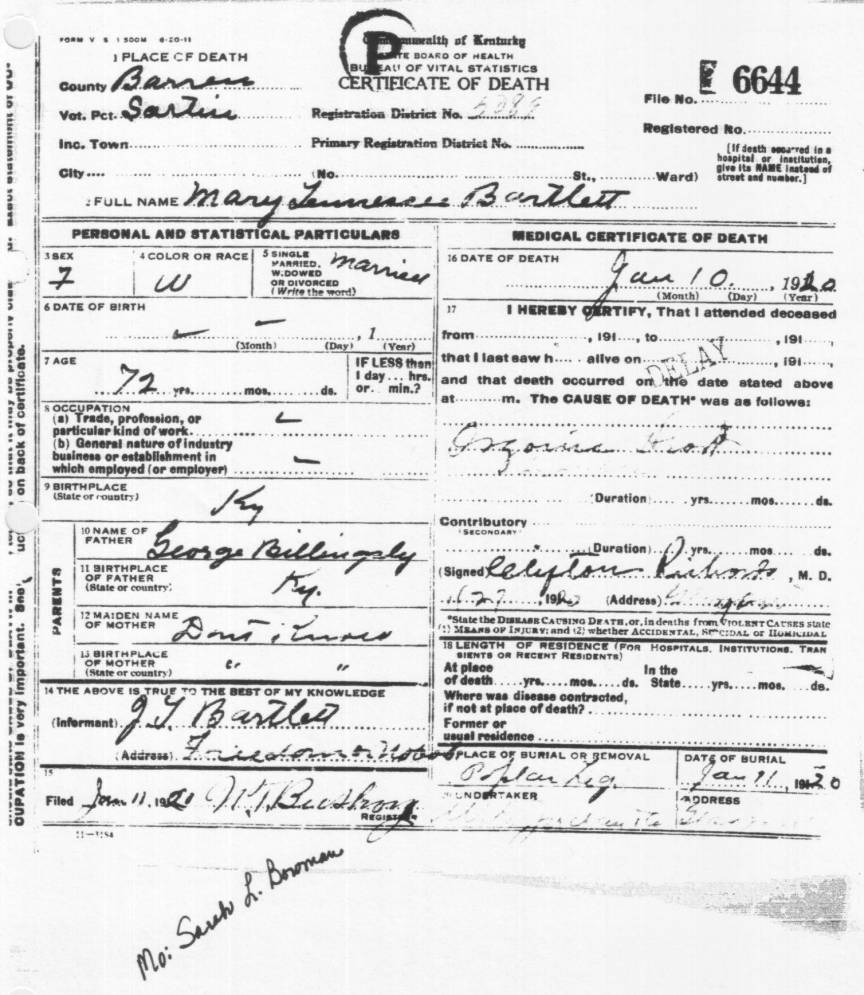 FORM V S 1 500M 6-20-11
Commonwealth of Kentucky
STATE BOARD OF HEALTH
BUREAU OF VITAL STATISTICS
CERTIFICATE OF DEATH
P
1 PLACE OF DEATH
County Barren
Vot. Pct. Sartin
Inc. Town
City
Registration District No.
Primary Registration District No.
(No. St., Ward)
File No. 6644
Registered No.
[If death occurred in a
hospital or institution,
give its NAME instead of
street and number.]
2 FULL NAME Mary Tennessee Bartlett
PERSONAL AND STATISTICAL PARTICULARS
3 SEX
F
4 COLOR OR RACE
W
5 SINGLE
MARRIED,
WIDOWED
OR DIVORCED
(Write the word)
Married
6 DATE OF BIRTH
, 1
(Month) (Day) (Year)
7 AGE
72 yrs. mos. ds.
IF LESS than
1 day... hrs.
or... min.?
8 OCCUPATION
(a) Trade, profession, or
particular kind of work
(b) General nature of industry
business or establishment in
which employed (or employer)
9 BIRTHPLACE
(State or country)
Ky
PARENTS
10 NAME OF
FATHER
George Billingsly
11 BIRTHPLACE
OF FATHER
(State or country)
Ky.
12 MAIDEN NAME
OF MOTHER
Dont Know
13 BIRTHPLACE
OF MOTHER
(State or country)
" "
14 THE ABOVE IS TRUE TO THE BEST OF MY KNOWLEDGE
(Informant) J.T. Bartlett
(Address) Freedom
15
Filed Jan 11, 1920
REGISTRAR
11-3184
MEDICAL CERTIFICATE OF DEATH
16 DATE OF DEATH
Jan 10, 1920
(Month) (Day) (Year)
17 I HEREBY CERTIFY, That I attended deceased
from , 191 , to , 191 ,
that I last saw h alive on , 191 ,
DELAY
and that death occurred on the date stated above
at m. The CAUSE OF DEATH* was as follows:
(Duration) yrs. mos. ds.
Contributory
(SECONDARY)
(Duration) yrs. mos. ds.
(Signed) Clifton Richards, M. D.
(Address)
*State the DISEASE CAUSING DEATH, or, in deaths from VIOLENT CAUSES state
(1) MEANS OF INJURY; and (2) whether ACCIDENTAL, SUICIDAL or HOMICIDAL
18 LENGTH OF RESIDENCE (FOR HOSPITALS, INSTITUTIONS, TRAN
SIENTS OR RECENT RESIDENTS)
At place In the
of death yrs. mos. ds. State yrs. mos. ds.
Where was disease contracted,
if not at place of death?
Former or
usual residence
PLACE OF BURIAL OR REMOVAL
Poplar Log
DATE OF BURIAL
Jan 11 1920
UNDERTAKER
ADDRESS
on back of certificate.
CUPATION is very important. See
Mo: Sarah L. Bowman